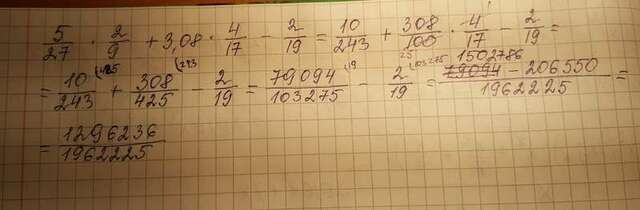 5/27 · 2/9 + 3,08 · 4/17 - 2/19 = 10/243 + 308/100 · 4/17 - 2/19 =
= 10/243 + 308/425 - 2/19 = 79094/103275 - 2/19 = 1502786 - 206550/1962225 =
= 1296236/1962225